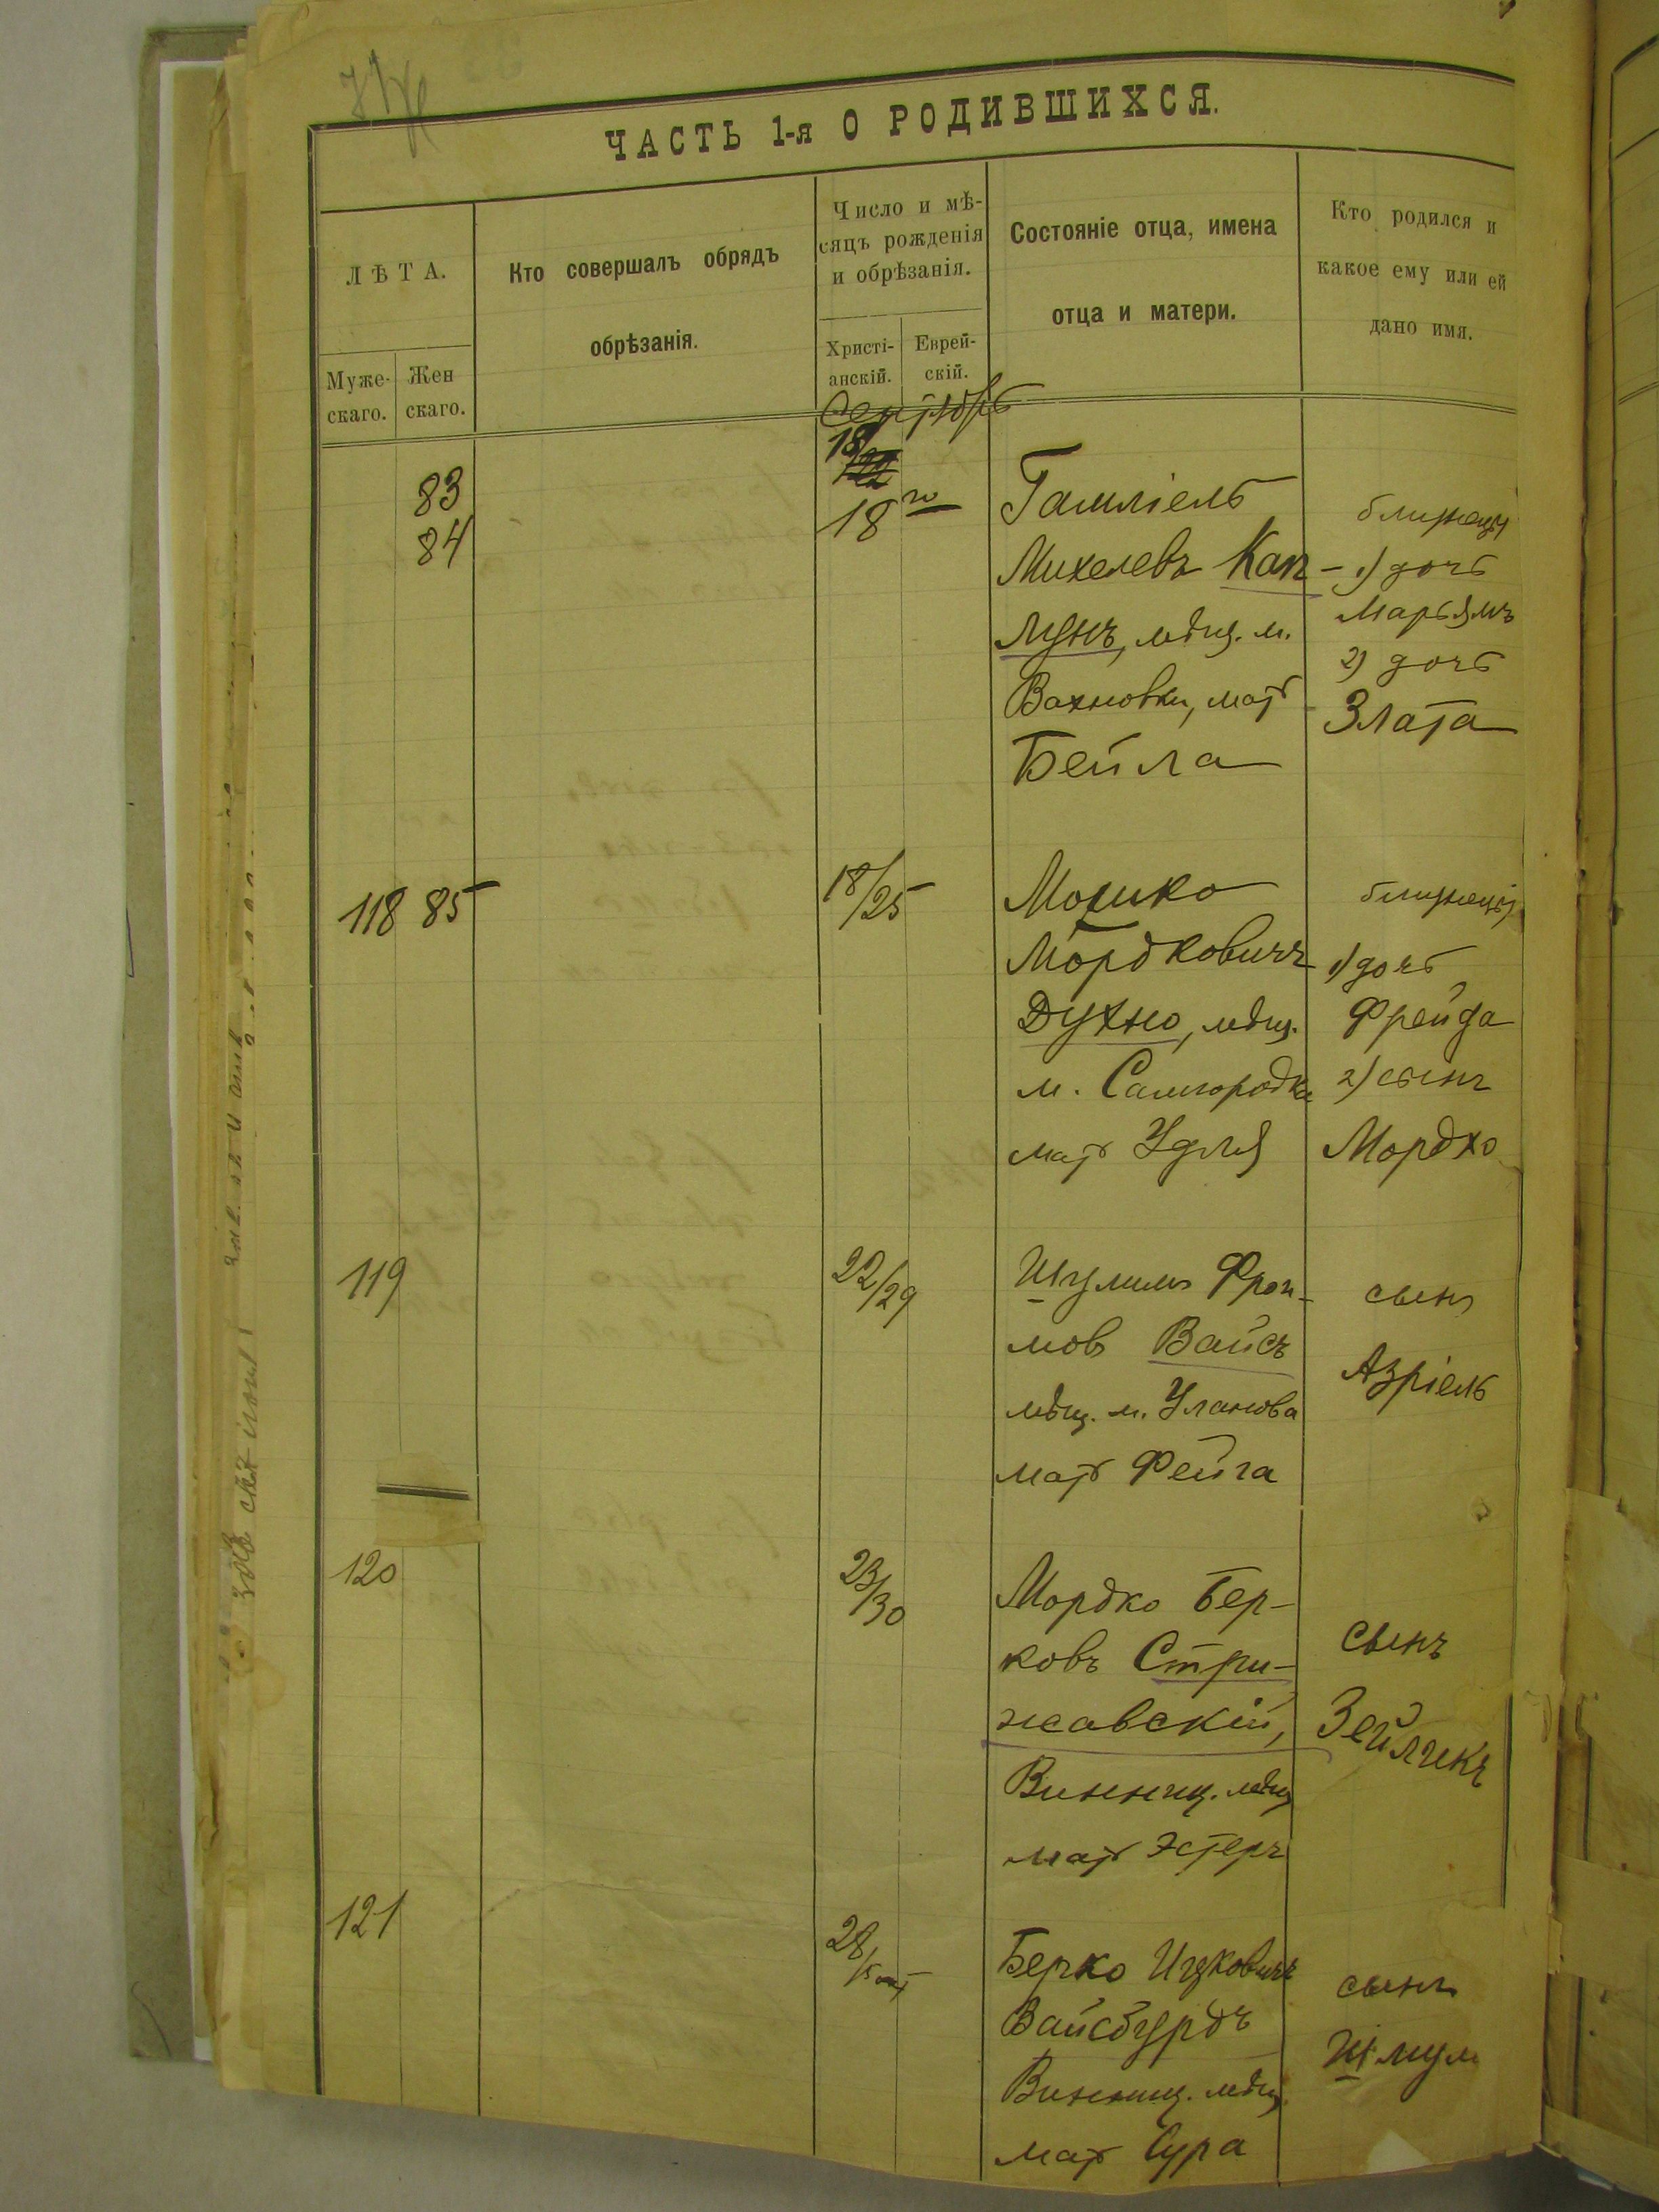 ЧАСТЬ 1-я О РОДИВШИХСЯ.
ЛѢТА.
Муже-
скаго.
Жен
скаго.
Кто совершалъ обрядъ
обрѣзанія.
Число и мѣ-
сяцъ рожденія
и обрѣзанія.
Христі-
анскій.
Еврей-
скій.
Состояніе отца, имена
отца и матери.
Кто родился и
какое ему или ей
дано имя.
Сентябрь
83
84
18
18го
Гамліель
Михелевъ Кап-
лунъ, мѣщ. м.
Вахновки, мать
Бейла
близнецы
1) дочь
Марьямъ
2) дочь
Злата
118 85
18/25
Мошко
Мордковичъ
Духно, мѣщ.
м. Самгородка
мать Удля
близнецы
1) дочь
Фрейда
2) сынъ
Мордхо
119
22/29
Шулимъ Фрои-
мов Вайсъ
мѣщ. м. Уланова
мать Фейга
сынъ
Азріель
120
23/30
Мордко Бер-
ковъ Стри-
жавскій,
Винниц. мѣщ
мать Эстеръ
сынъ
Зейликъ
121
28/5 окт
Берко Ицковичъ
Вайсбурдъ
Винниц. мѣщ.
мать Сура
сынъ
Шмуль